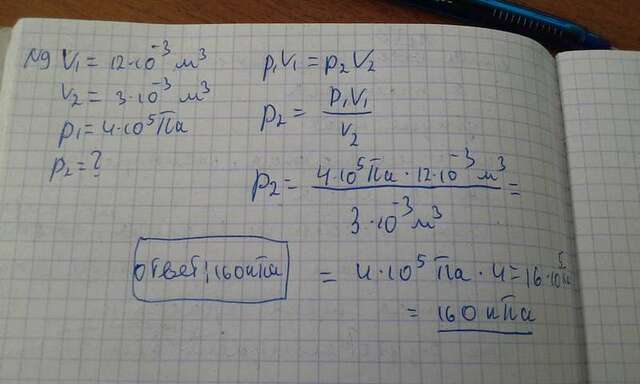 №9 V₁ = 12·10⁻³ м³
V₂ = 3·10⁻³ м³
p₁ = 4·10⁵ Па
p₂ = ?
p₁V₁ = p₂V₂
p₂ = p₁V₁ / V₂
p₂ = 4·10⁵ Па · 12·10⁻³ м³ / 3·10⁻³ м³ =
= 4·10⁵ Па · 4 = 16·10⁵ Па
= 160 кПа
ответ: 160 кПа